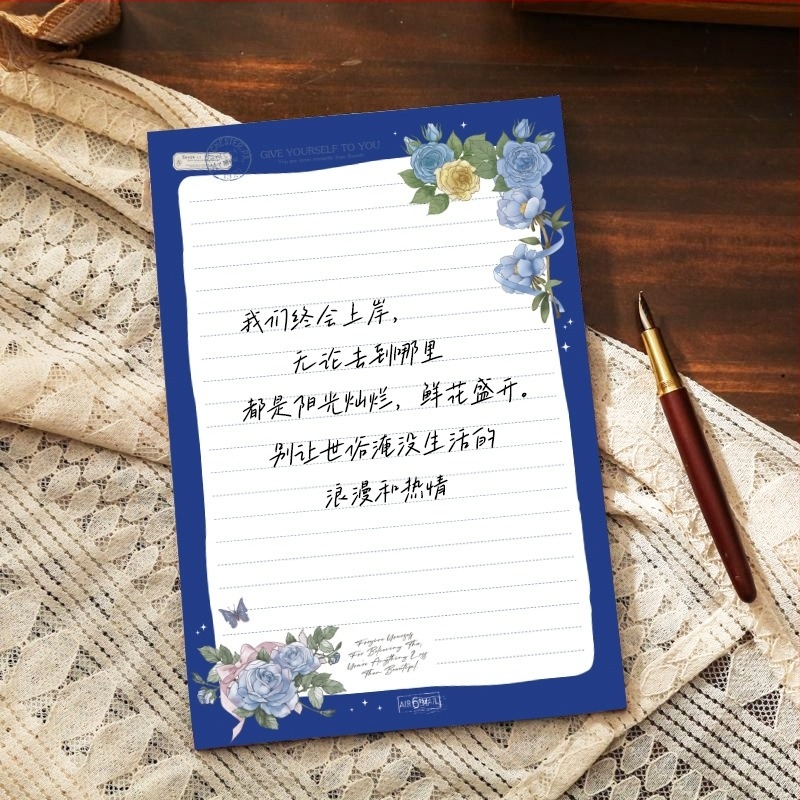 GIVE YOURSELF TO YOU
我们终会上岸，
无论去到哪里
都是阳光灿烂，鲜花盛开。
别让世俗淹没生活的
浪漫和热情
Forgive Yourself
For Blaming The